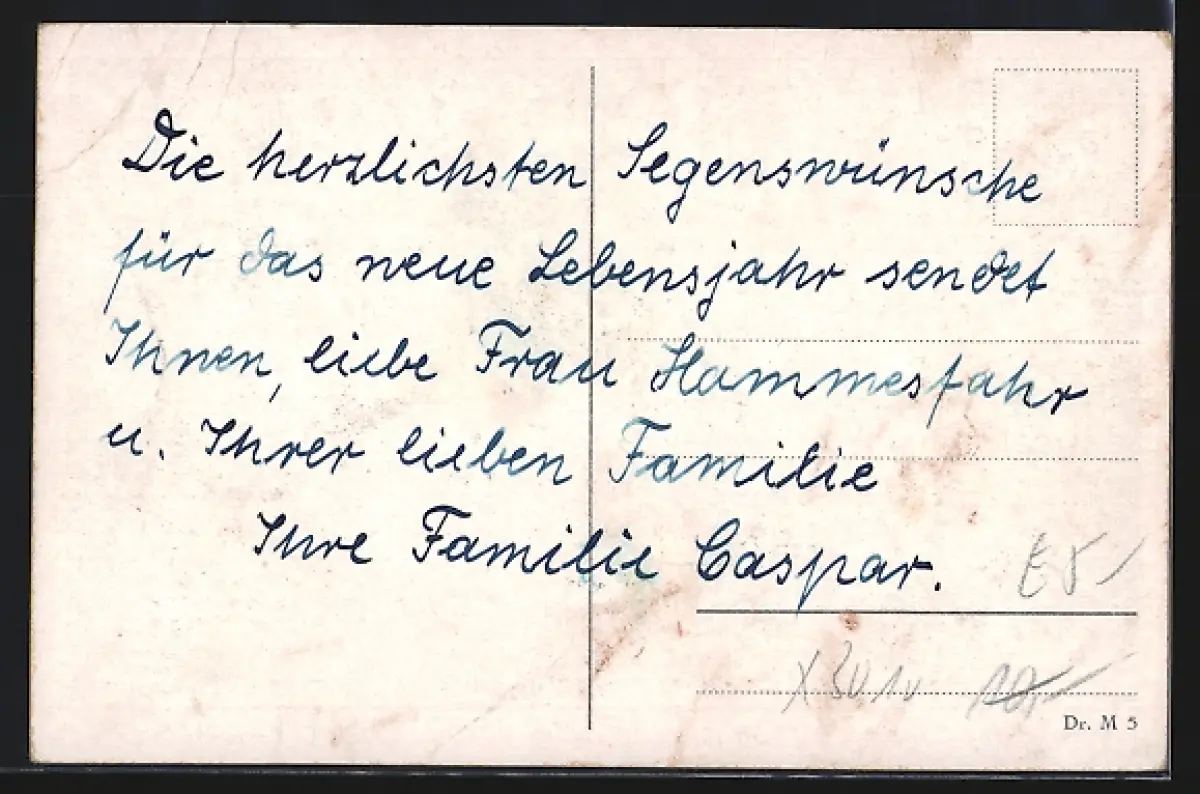 Die herzlichsten Segenswünsche
für das neue Lebensjahr sendet
Ihnen, liebe Frau Hammesfahr
u. Ihrer lieben Familie
Ihre Familie Caspar.
Dr. M 5